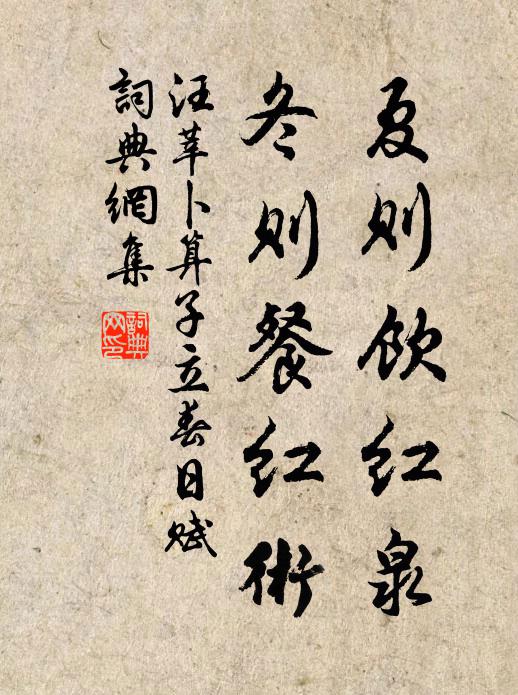 夏则饮红泉
冬则餐红術
汪莘卜算子立春日赋
詞典網集
詞典网印